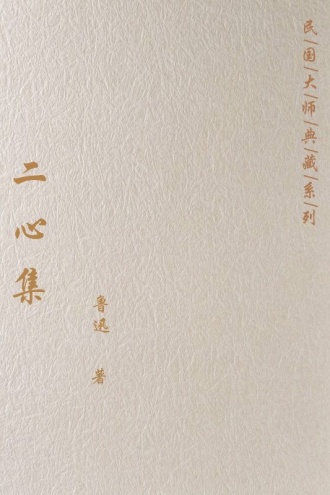 民国大师典藏系列
二心集
鲁迅 著